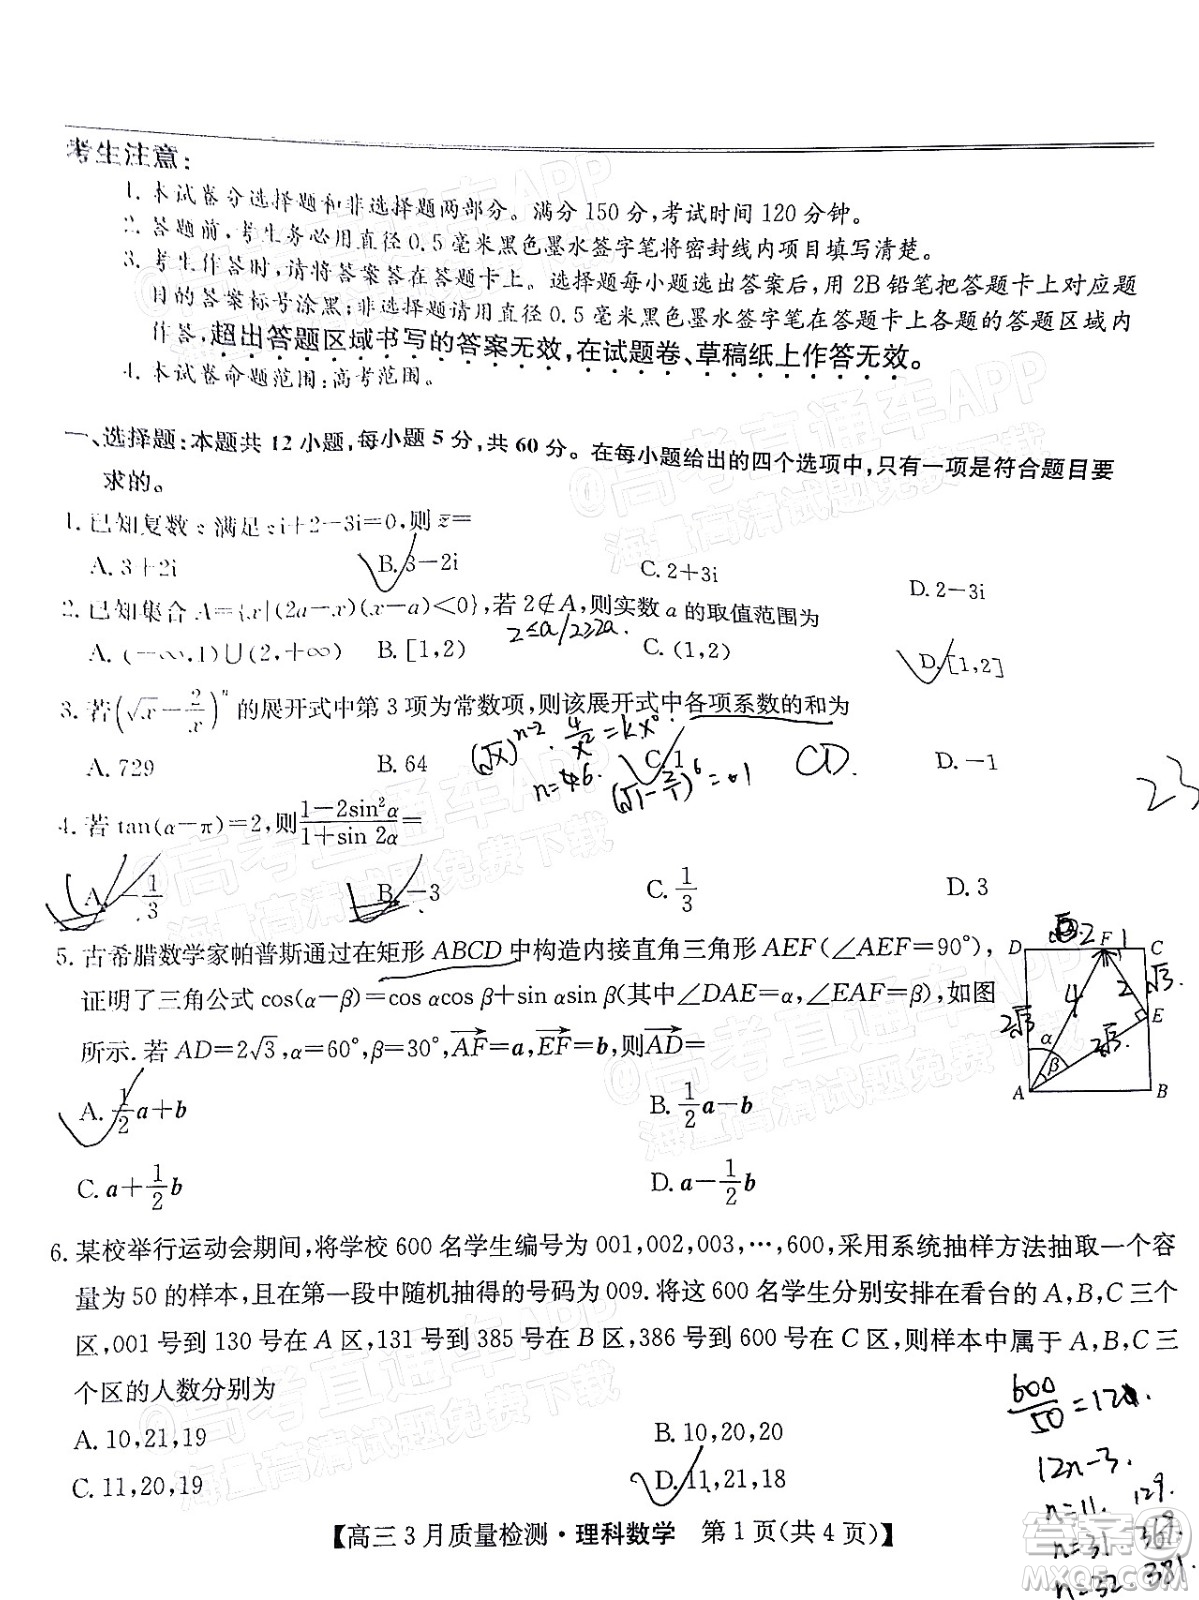 考生注意:
1. 本试卷分选择题和非选择题两部分。满分 150 分,考试时间 120 分钟。
2. 答题前,考生务必用直径 0.5 毫米黑色墨水签字笔将密封线内项目填写清楚。
3. 考生作答时,请将答案答在答题卡上。选择题每小题选出答案后,用 2B 铅笔把答题卡上对应题
目的答案标号涂黑;非选择题请用直径 0.5 毫米黑色墨水签字笔在答题卡上各题的答题区域内
作答,超出答题区域书写的答案无效,在试题卷、草稿纸上作答无效。
4. 本试卷命题范围:高考范围。
一、选择题:本题共 12 小题,每小题 5 分,共 60 分。在每小题给出的四个选项中,只有一项是符合题目要
求的。
1. 已知复数 z 满足 zi+2-3i=0,则 z̄=
A. 3+2i B. 3-2i C. 2+3i D. 2-3i
2. 已知集合 A={x|(2a-x)(x-a)<0},若 2∉A,则实数 a 的取值范围为
2≤a/2≥2a.
A. (-∞,1)∪(2,+∞) B. [1,2) C. (1,2) D. [1,2]
3. 若(√x-2/x)^n 的展开式中第 3 项为常数项,则该展开式中各项系数的和为
(√x)^{n-2}·4/x²=kx⁰
A. 729 B. 64 C. 1 D. -1
n=6. (√1-2/1)^6=1 CD. 23
4. 若 tan(α-π)=2,则(1-2sin²α)/(1+sin 2α)=
A. -1/3 B. -3 C. 1/3 D. 3
5. 古希腊数学家帕普斯通过在矩形 ABCD 中构造内接直角三角形 AEF(∠AEF=90°),
证明了三角公式 cos(α-β)=cos αcos β+sin αsin β(其中∠DAE=α,∠EAF=β),如图
所示. 若 AD=2√3,α=60°,β=30°,AF→=a,EF→=b,则AD→=
D 2 F 1 C
4 2 √3
2√3 2√3. E
α β
A B
A. 1/2 a+b B. 1/2 a-b
C. a+1/2 b D. a-1/2 b
6. 某校举行运动会期间,将学校 600 名学生编号为 001,002,003,…,600,采用系统抽样方法抽取一个容
量为 50 的样本,且在第一段中随机抽得的号码为 009. 将这 600 名学生分别安排在看台的 A,B,C 三个
区,001 号到 130 号在 A 区,131 号到 385 号在 B 区,386 号到 600 号在 C 区,则样本中属于 A,B,C 三
个区的人数分别为
A. 10,21,19 B. 10,20,20
C. 11,20,19 D. 11,21,18
600/50=12.
12n-3.
n=11. 129.
n=31. 369.
n=32. 381.
【高三 3 月质量检测·理科数学 第 1 页(共 4 页)】
@高考直通车APP
海量高清试题免费下载
答案圈
MXQE.COM